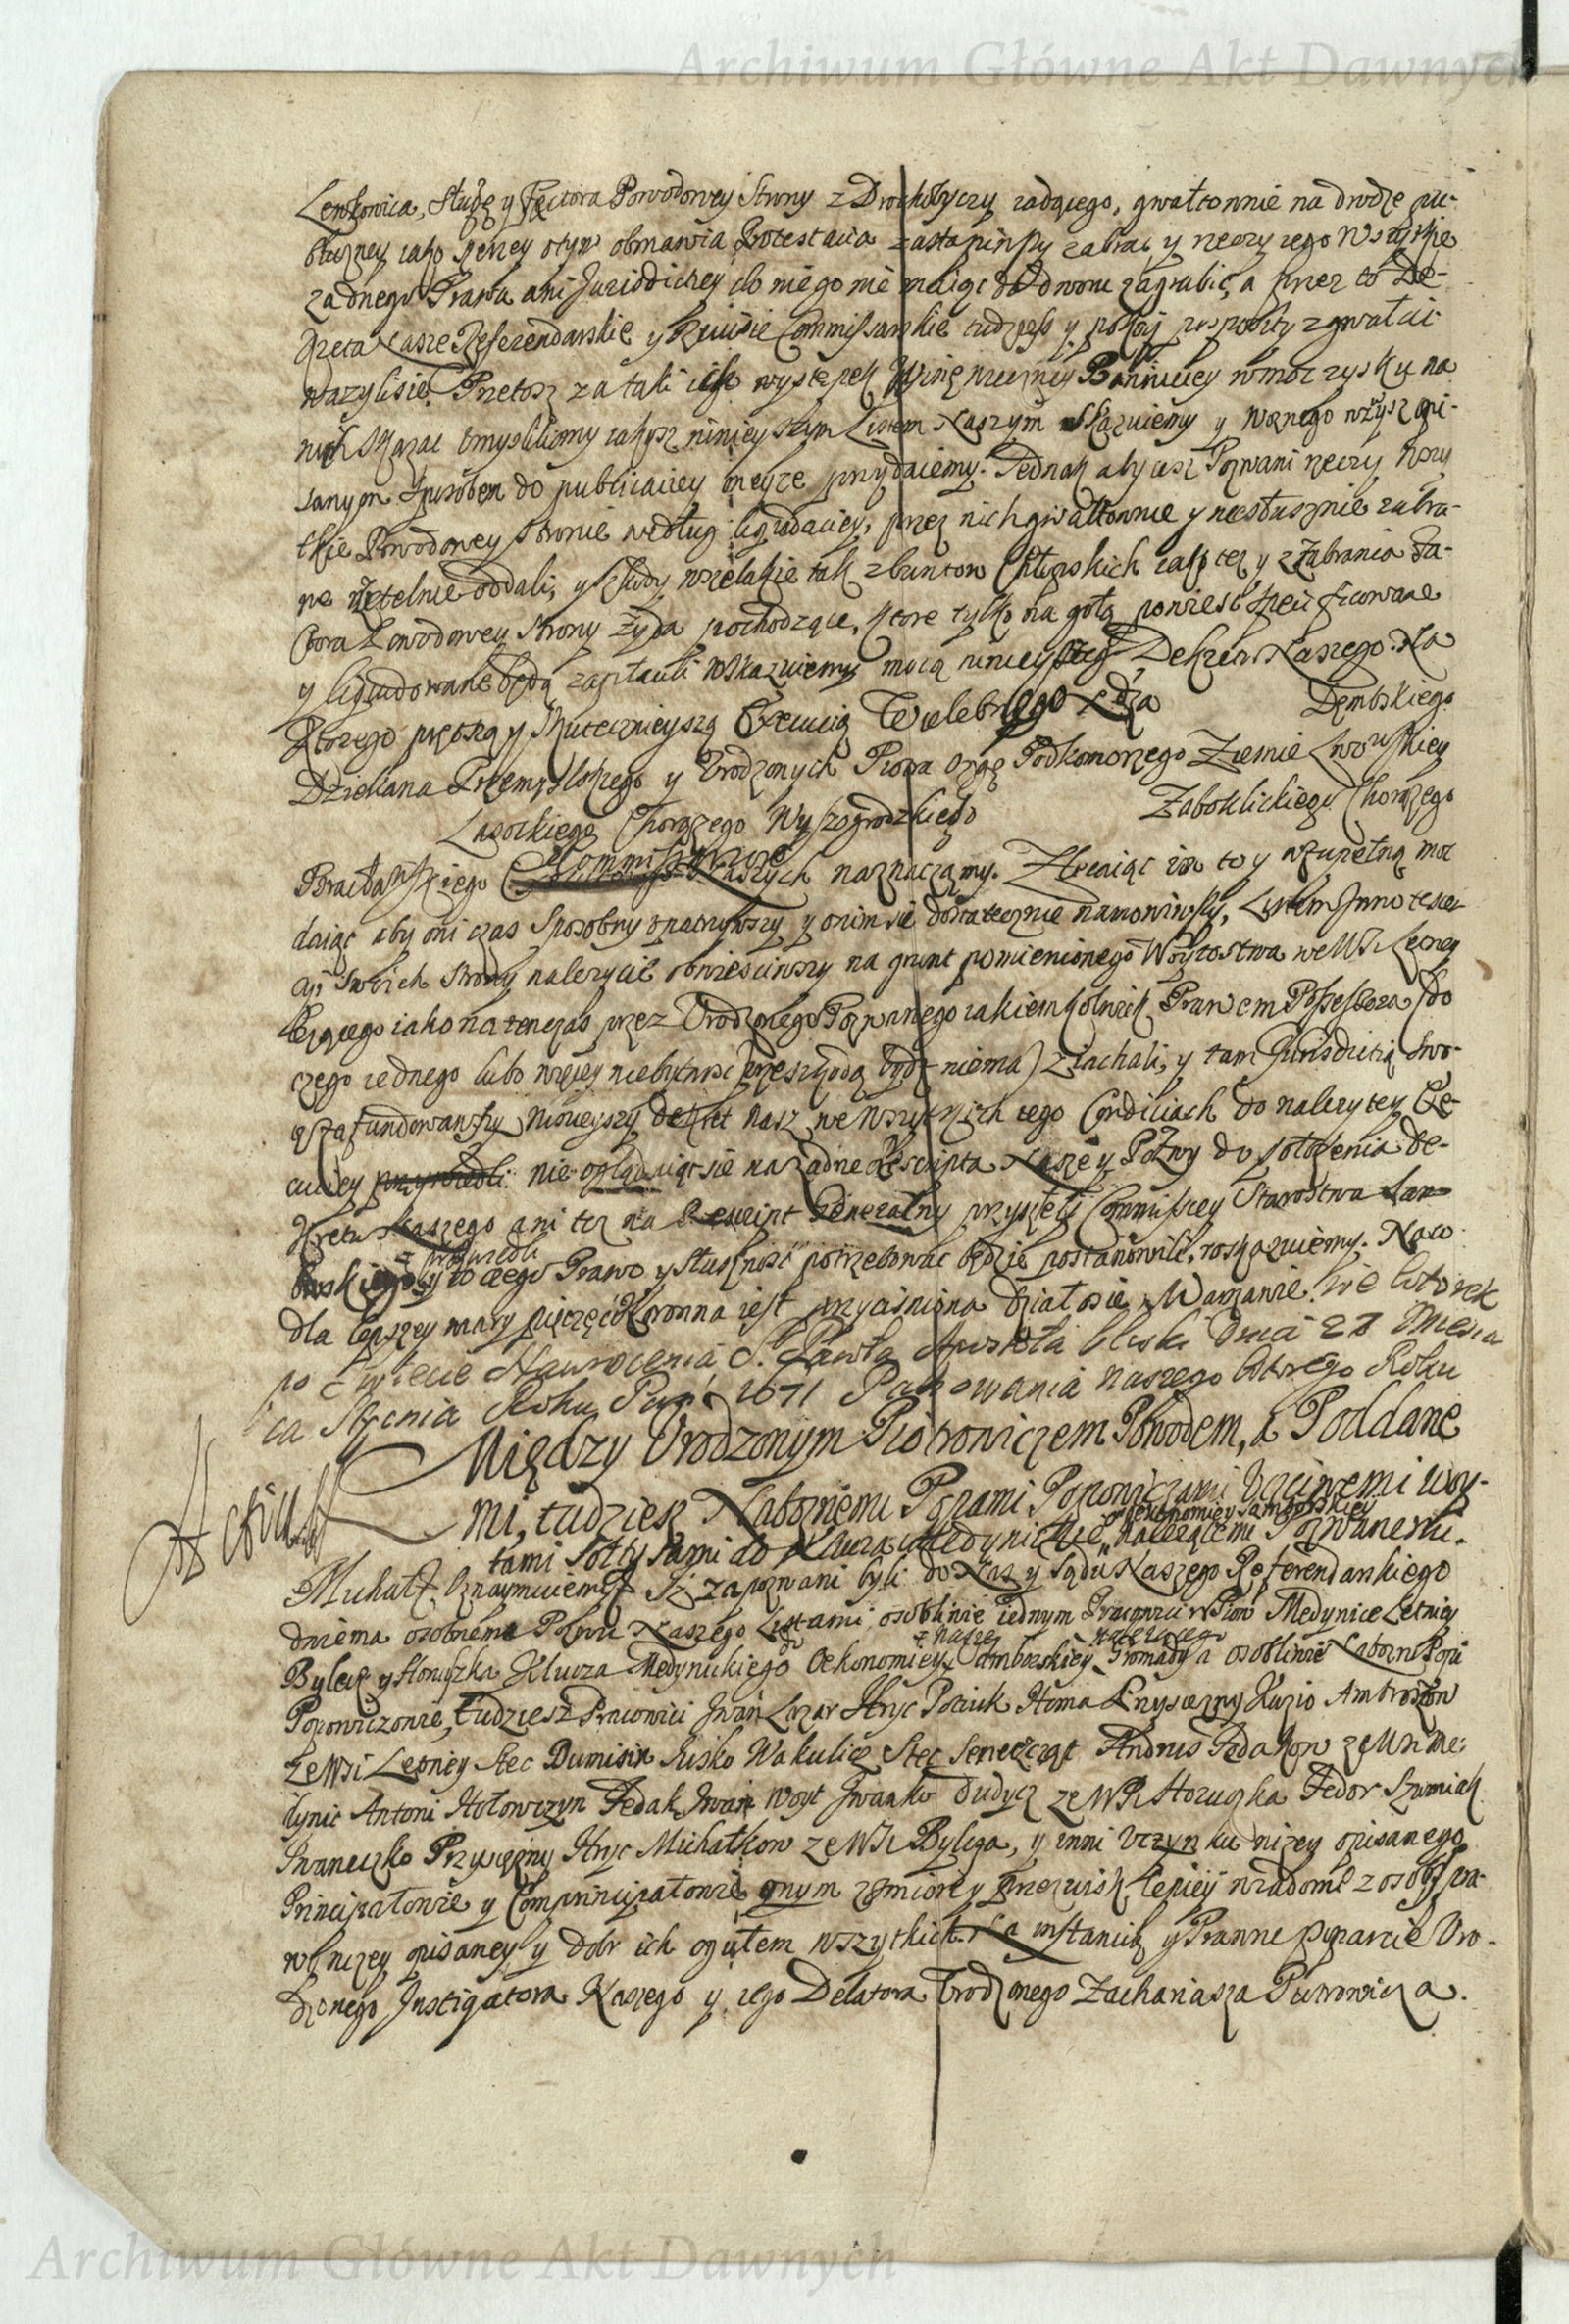 Archiwum Główne Akt Dawnych
Lewkowica, Sługę y Factora Powodowey Strony z Drohobyczy iadącego, gwałtownie na drodze pu-
bliczney iako szerzey otym obmawia Protestacia zastąpiwszy zabrac y rzeczy iego wszytkie
zadnego Prawa ani Jurisdictiey do niego nie maiąc do dworu zagrabic, a przez to De-
kreta Nasze Referendarskie y Commissarskie tudziesz y pokoy pospolity zgwałcic
wazylisie. Przetosz za taki ich występek Winę wieczney Banniciey w
nich wskazac umyslilismy iakosz ninieyszym Listem Naszym wskazuiemy y Woznego wyzysz opi-
sanym sposobem do publicatiey oneyze przydaiemy. Jednak aby ciesz Pozwani rzeczy wszy
tkie Powodowey stronie według liquidatiey, przez nich gwałtownie y niesłusznie zabra-
ne rzetelnie oddali, y szkody wszelakie tak z buntow Chłopskich iako tez y z zabrania Fa-
ctora Powodowey strony Zyda pochodzące, ktore tylko na gołą powiesc specificowane
y liquidowane będą zapłacili wskazuiemy mocą ninieyszego Dekretu Naszego. Na
ktorego prętszą y skutecznieyszą Executią Wielebnego Xdza Dembskiego
Dziekana Przemyslskiego y Urodzonych Piotra Ozgę Podkomorzego Ziemie Lwowskiey
Lasockiego Chorązego Wyszogrodzkiego Zaboklickiego Chorązego
Bracławskiego Commissarzow Naszych naznaczamy. Zlecaiąc im to y zupełną moc
daiąc aby oni czas sposobny upatrzywszy y onim sie dostatecznie namowiwszy, Listem Innotescen-
 swoich strony nalezycie obwiesciwszy na grunt pomienionego Woytostwa we Wsi Letney
lezącego iako natenczas przez Urodzonego Pozwanego iakiemkolwiek Prawem Possessora (do
czego iednego lubo więcey niebytnosc przeszkodą bydz niema) ziachali, y tam Jurisdictią swo-
ię zafundowawszy ninieyszy dekret nasz we wszytkich iego Conditiach do nalezytey Exe-
cutiey przywiedli nie oglądaiąc sie na zadne Rescripta Nasze y Pozwy do złozenia De-
kretu Naszego ani tez na Rescript Generalny przyszłey Commissiey Starostwa Sam-
borskiego przywiedli y to czego Prawo y słusznosc potrzebowac będzie postanowili, roskazuiemy. Na co
dla lepszey wiary pieczęć Koronna iest przycisniona Działosie w Warszawie. We Wtorek
po Swiecie Nawrocenia S. Pawła Apostoła bliski Dnia 27 Miesią
ca Stycznia Roku Pań: 1671 Panowania naszego Wtorego Roku
Między Urodzonym Piotrowiczem Powodem, a Poddane
mi, tudziesz Naboznemi Popami Popowiczami Uczciwemi Woy-
tami Sołtysami do Klucza Medynickie oekonomiey Samborskiey nalezącemi Pozwanemi.
Michał. Oznaymuiemy. Iz zapozwani byli do Nas y sądu Naszego Referendarskiego
dwiema osobnemi Pozwu Naszego Listami, osobliwie iednym Pracowici Wsiow Medynice Letniey
Bylcza y Horuczka Klucza Medynickiego do Oekonomiey Naszey Samborskiey nalezącego Gromady a osobliwie Nabozni Popi
Popowiczowie, Tudziesz Pracowici Iwan Lazar Hryc Pociuk Homa Przysiezny Kuzio Ambrozow
ze Wsi Letney Stec Dumicin Misko Wakulicz Stec Senecząt Andrus Fedakow ze Wsi Me:
dynic Antoni Hołowczyn Fedak Iwan Woyt Iwanko Dudycz ze Wsi Horuczka Fedor Szumiak
Iwaneczko Przysiezny Hryc Michałkow ze Wsi Bylcza, y inni Uczynku nizey opisanego
Principałowie y Comprincipałowie onym z imion y przezwisk lepiey wiadomi z osob spra-
wy nizey opisaney y dobr ich ogułem wszytkich. Na instantią y Prawne poparcie Uro-
dzonego Instigatora Naszego y iego Delatora Urodzonego Zachariasza Piotrowicza.
Archiwum Główne Akt Dawnych